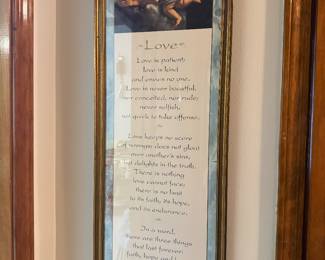 ~Love~
Love is patient;
love is kind
and envies no one.
Love is never boastful,
nor conceited, nor rude;
never selfish,
not quick to take offense.
Love keeps no score
of wrongs; does not gloat
over another's sins,
but delights in the truth.
There is nothing
love cannot face;
there is no limit
to its faith, its hope,
and its endurance.
In a word,
there are three things
that last forever:
faith, hope and